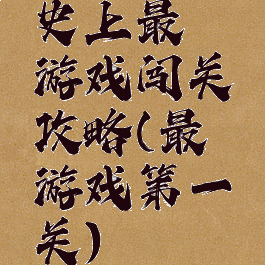 史上最
游戏闯关
攻略(最
游戏第一
关)